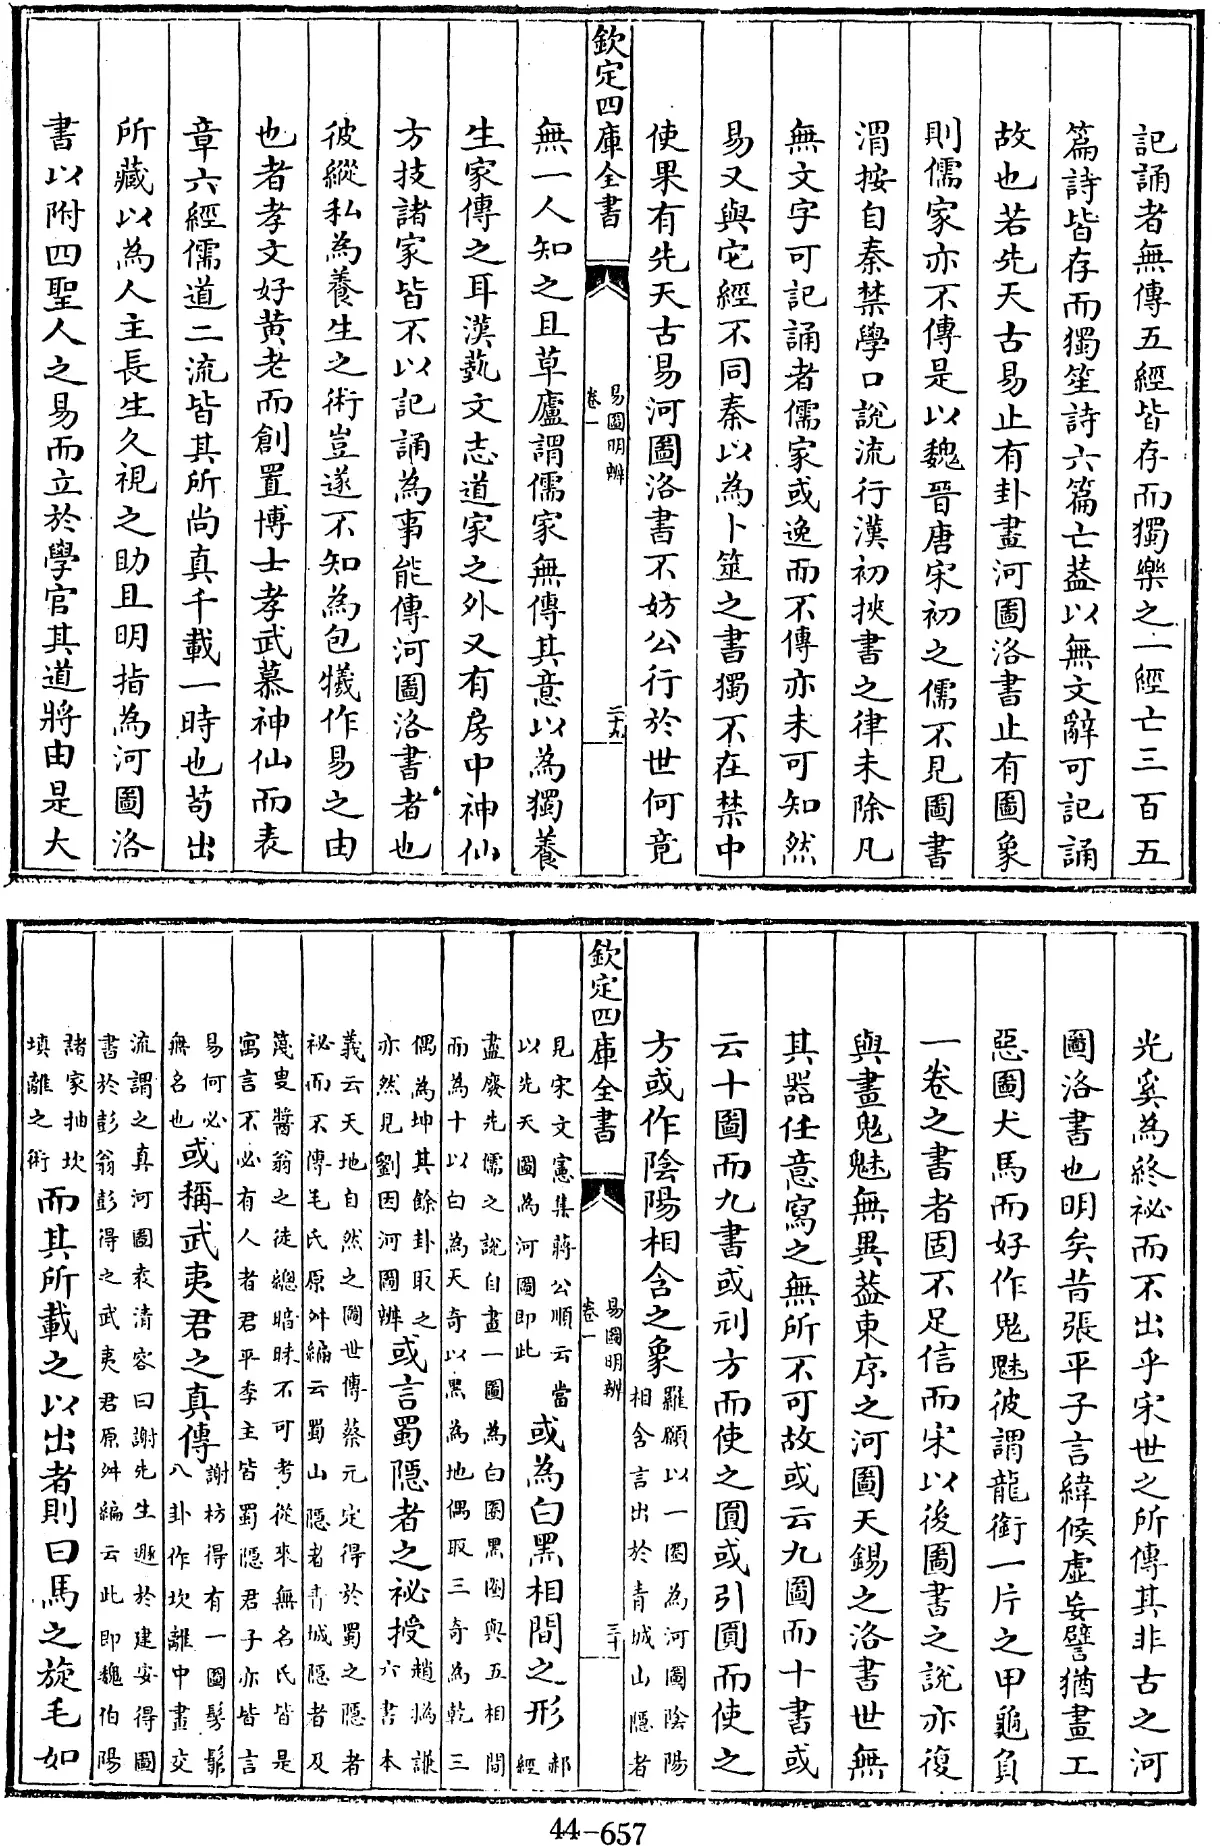 記誦者無傳五經皆存而獨樂之一經亡三百五
篇詩皆存而獨笙詩六篇亡葢以無文辭可記誦
故也若先天古易止有卦畫河圖洛書止有圖象
則儒家亦不傳是以魏晉唐宋初之儒不見圖書
渭按自秦禁學口說流行漢初挾書之律未除凡
無文字可記誦者儒家或逸而不傳亦未可知然
易又與它經不同秦以為卜筮之書獨不在禁中
使果有先天古易河圖洛書不妨公行於世何竟
欽定四庫全書
易圖明辨
卷一
二十九
無一人知之且草廬謂儒家無傳其意以為獨養
生家傳之耳漢藝文志道家之外又有房中神仙
方技諸家皆不以記誦為事能傳河圖洛書者也
彼縱私為養生之術豈遂不知為包犧作易之由
也者孝文好黃老而創置博士孝武慕神仙而表
章六經儒道二流皆其所尚真千載一時也苟出
所藏以為人主長生久視之助且明指為河圖洛
書以附四聖人之易而立於學官其道將由是大
光奚為終祕而不出乎宋世之所傳其非古之河
圖洛書也明矣昔張平子言緯候虛妄譬猶畫工
惡圖犬馬而好作鬼魅彼謂龍銜一片之甲龜負
一卷之書者固不足信而宋以後圖書之說亦復
與畫鬼魅無異葢東序之河圖天錫之洛書世無
其器任意寫之無所不可故或云九圖而十書或
云十圖而九書或刓方而使之圓或引圓而使之
方或作陰陽相含之象
羅願以一圈為河圖陰陽
相含言出於青城山隱者
欽定四庫全書
易圖明辨
卷一
三十
見宋文憲集蔣公順云當
以先天圖為河圖即此
或為白黑相間之形
郝
經
盡廢先儒之說自畫一圖為白圈黑圈與五相間
而為十以白為天奇以黑為地偶取三奇為乾三
偶為坤其餘卦取之
亦然見劉因河圖辨
或言蜀隱者之祕授
趙撝謙
六書本
義云天地自然之圖世傳蔡元定得於蜀之隱者
祕而不傳毛氏原舛編云蜀山隱者青城隱者及
篾叟醬翁之徒總暗昧不可考從來無名氏皆是
寓言不必有人者君平李主皆蜀隱君子亦皆言
易何必
無名也
或稱武夷君之真傳
謝枋得有一圖髣髴
八卦作坎離中畫交
流謂之真河圖袁清容曰謝先生遯於建安得圖
書於彭翁彭得之武夷君原舛編云此即魏伯陽
諸家抽坎
填離之術
而其所載之以出者則曰馬之旋毛如
44-657